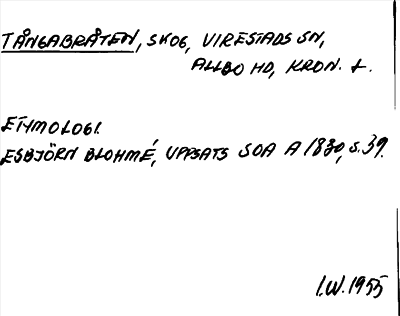 TÅNGABRÅTEN, SKOG, VIRESTADS SN,
ALLBO HD, KRON. L.
ETYMOLOGI.
ESBJÖRN BLOHMÉ, UPPSATS SOA A 1830, S. 39.
I.W. 1955